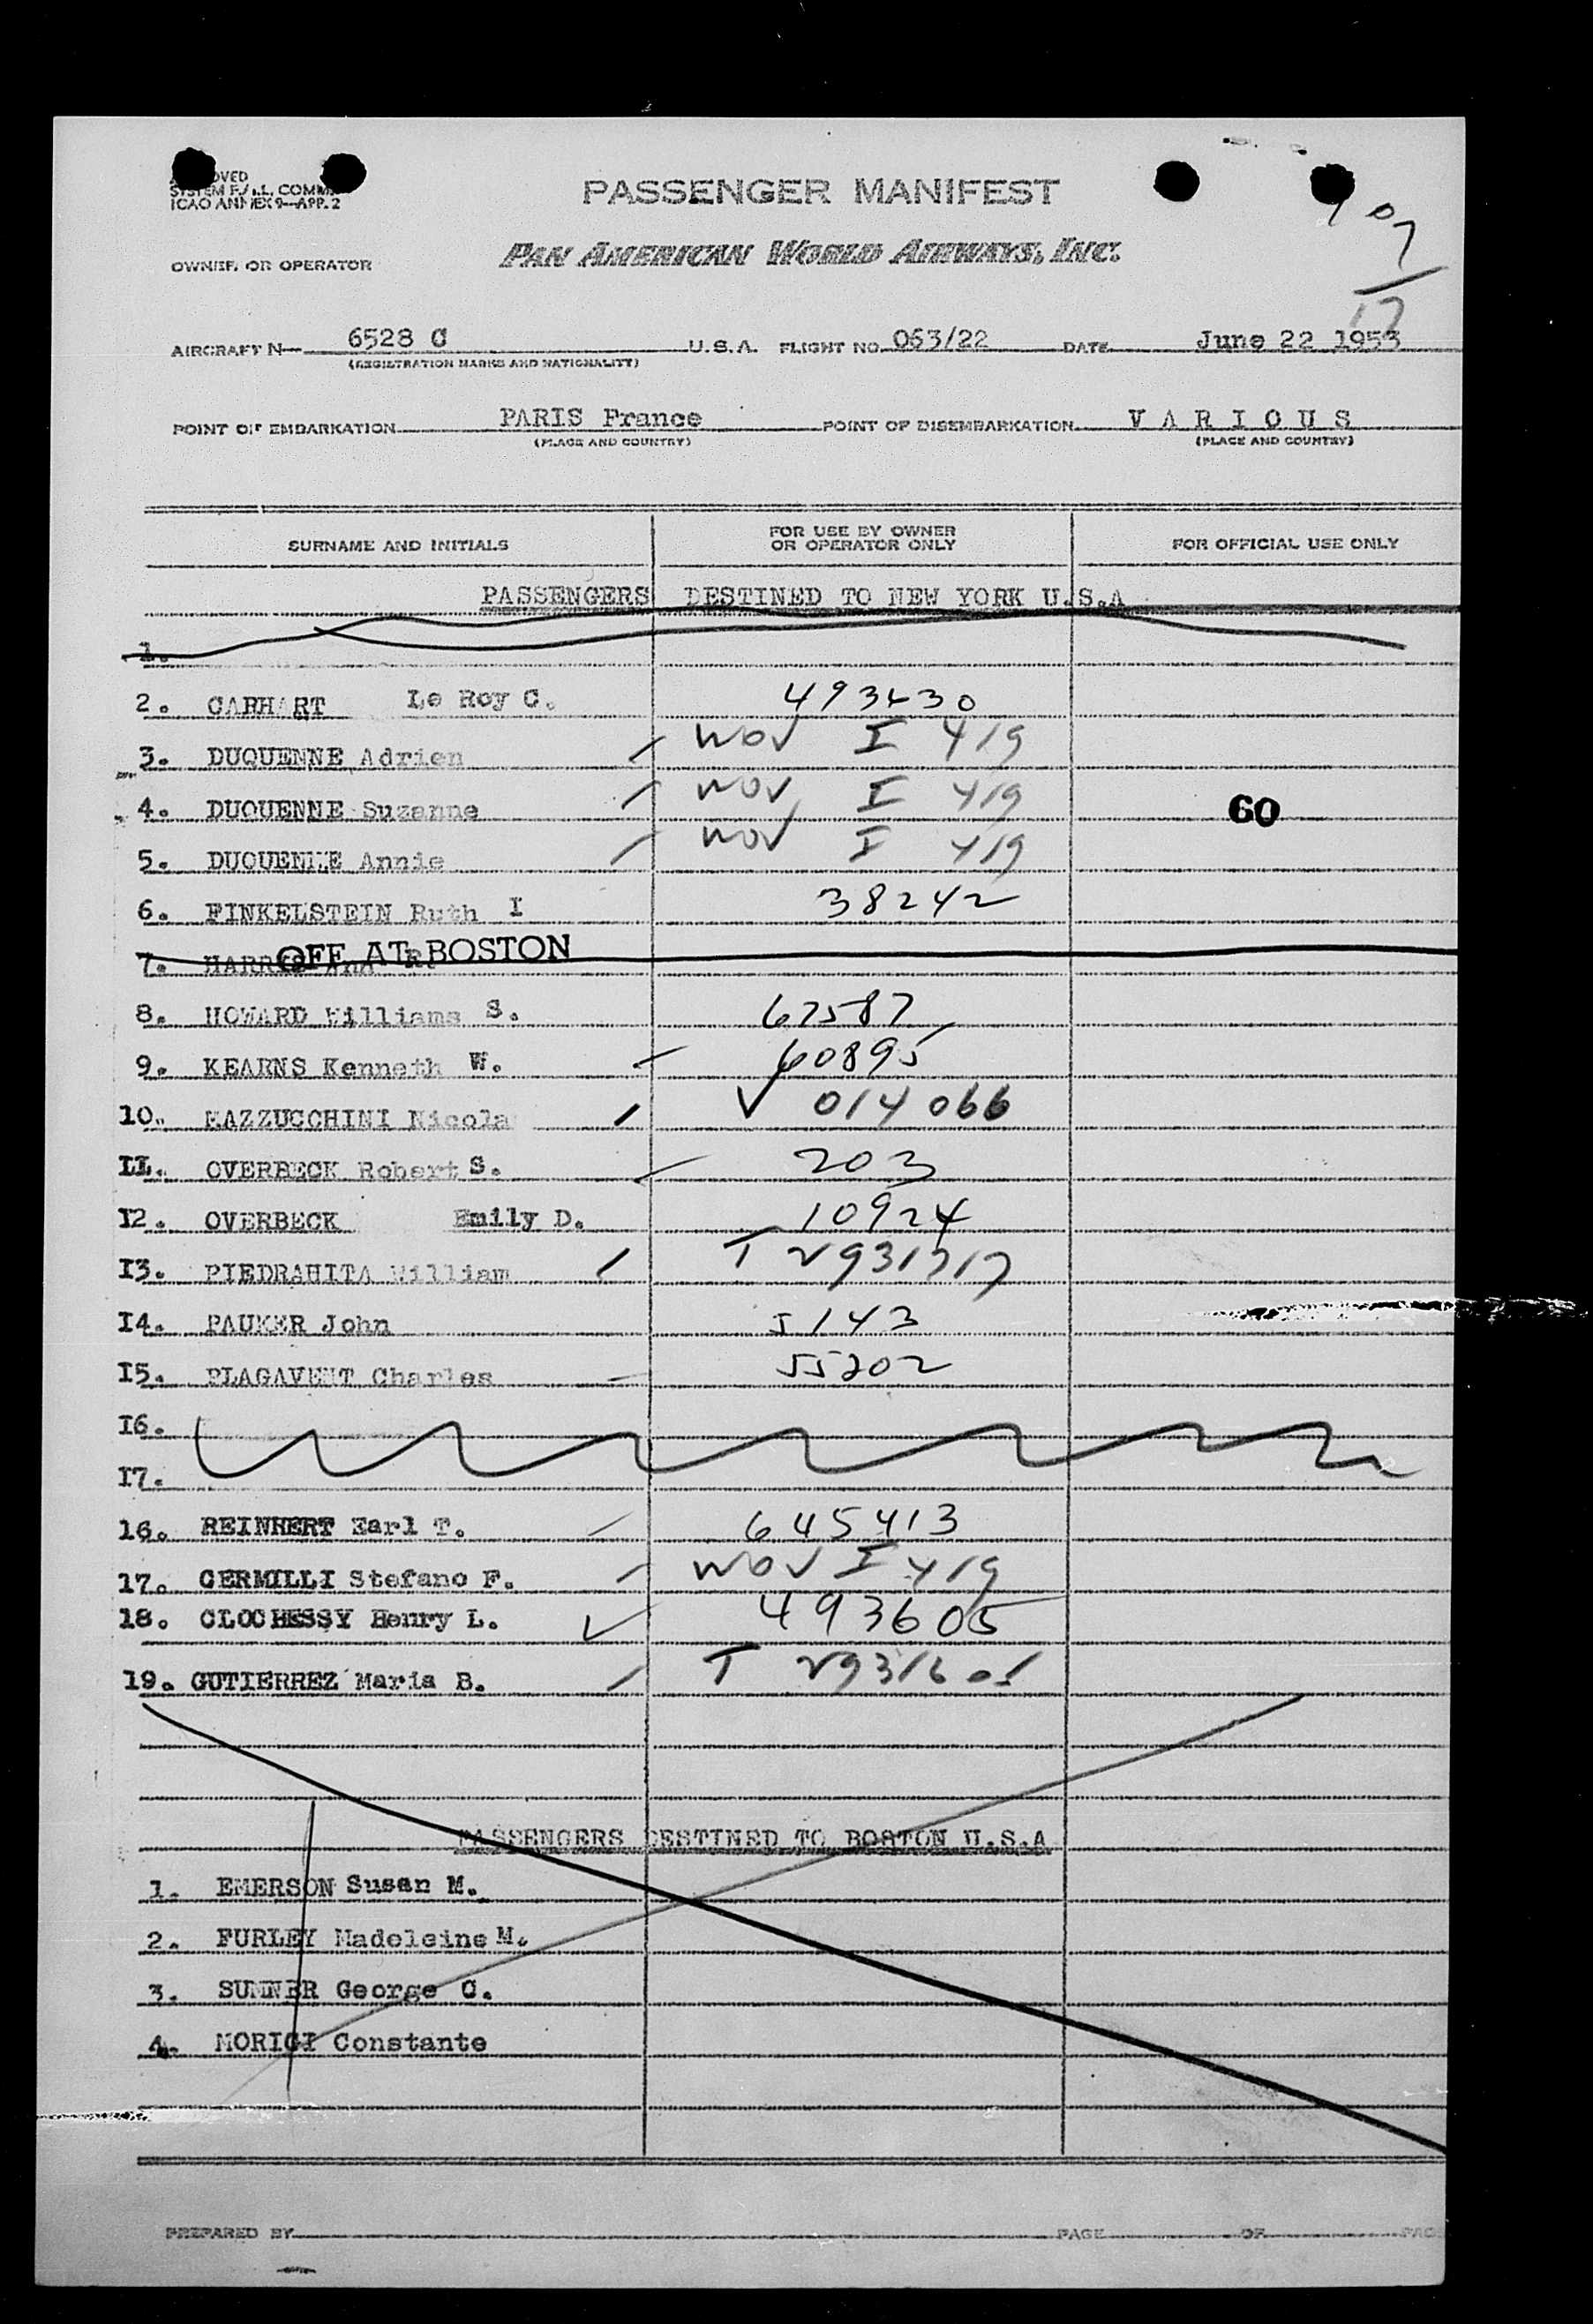 PASSENGER MANIFEST
SYSTEM F.A.L. COMM
ICAO ANNEX 9—APP. 2
OWNER OR OPERATOR PAN AMERICAN WORLD AIRWAYS, INC.
AIRCRAFT N— 6528 C U.S.A. FLIGHT NO. 063/22 DATE June 22 1953
(REGISTRATION MARKS AND NATIONALITY)
POINT OF EMBARKATION PARIS France POINT OF DISEMBARKATION V A R I O U S
(PLACE AND COUNTRY) (PLACE AND COUNTRY)
SURNAME AND INITIALS FOR USE BY OWNER OR OPERATOR ONLY FOR OFFICIAL USE ONLY
PASSENGERS DESTINED TO NEW YORK U.S.A
1.
2. CARHART Le Roy C. 493430
3. DUQUENNE Adrien I 419
4. DUQUENNE Suzanne I 419 60
5. DUQUENNE Annie I 419
6. FINKELSTEIN Ruth I 38242
7. HARRIS Ann R. OFF AT BOSTON
8. HOWARD Williams S. 67587
9. KEARNS Kenneth W. 60895
10. MAZZUCCHINI Nicola V 014066
II. OVERBECK Robert S. 203
I2. OVERBECK Emily D. 10924
I3. PIEDRAHITA William T 2931717
I4. PAUKER John 5143
I5. PLAGAVENT Charles 55202
I6.
I7.
16. REINHERT Earl T. 645413
17. CERMILLI Stefano F. I 419
18. CLOCHESSY Henry L. 493605
19. GUTIERREZ Maria B. T 2931601
PASSENGERS DESTINED TO BOSTON U.S.A
1. EMERSON Susan M.
2. FURLEY Madeleine M.
3. SUMNER George C.
4. MORIGI Constante
PREPARED BY PAGE OF